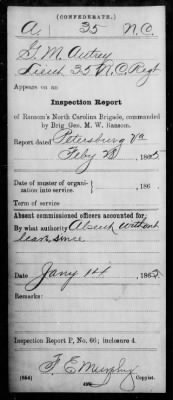 (CONFEDERATE.)
A. 35 N.C.
G. M. Autrey
Lieut. 35 N.C. Regt
Appears on an
Inspection Report
of Ransom's North Carolina Brigade, commanded
by Brig. Gen. M. W. Ransom.
Report dated Petersburg Va
Feby 28, 1865
Date of muster of organization into service. } , 186 .
Term of service
Absent commissioned officers accounted for:
By what authority Absent without
leave since
Date Jany 14, 1865
Remarks:
Inspection Report P, No. 66; inclosure 4.
F. E. Murphy
Copyist.